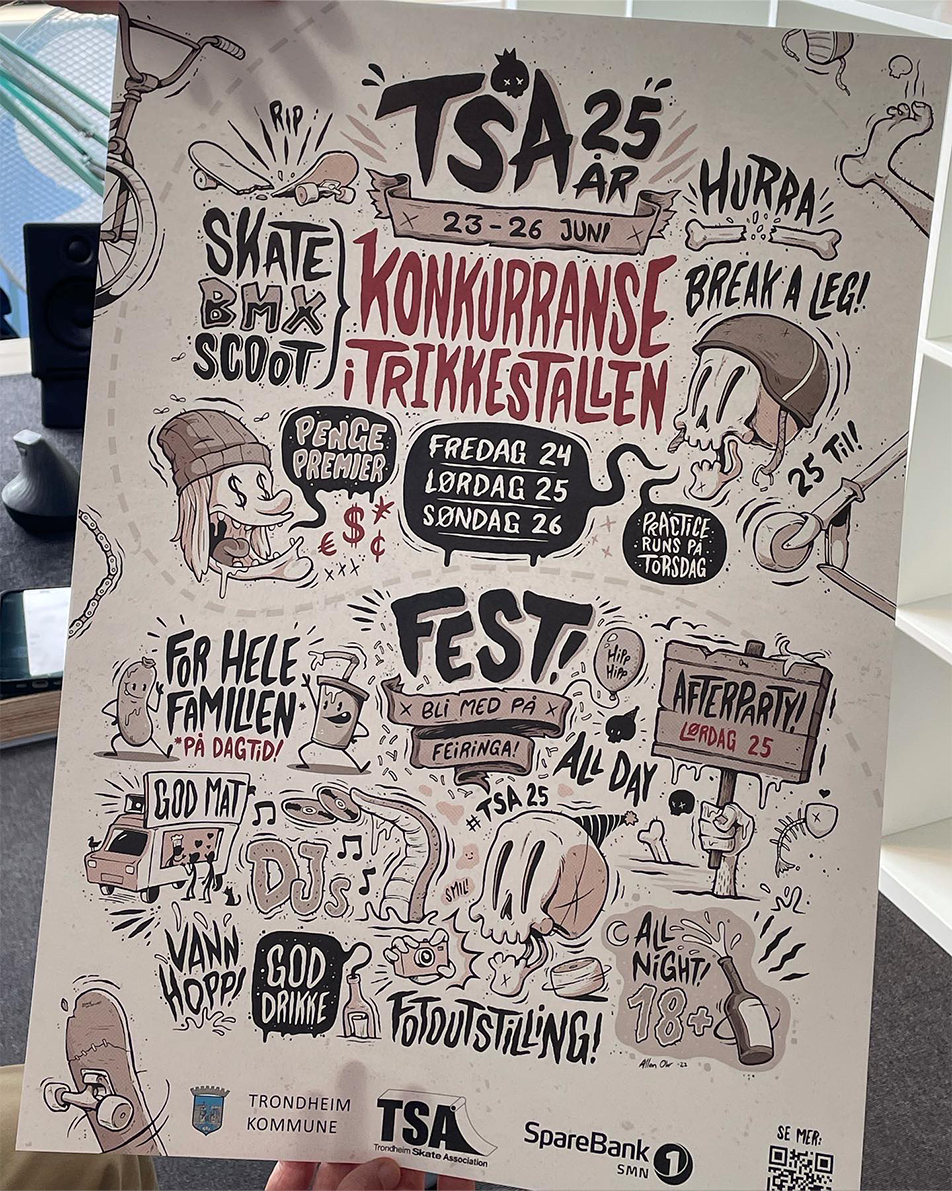 TSA 25
ÅR
RIP
23-26 JUNI
HURRA
SKATE
BMX
SCOOT
KONKURRANSE
i TRIKKESTALLEN
BREAK A LEG!
PENGE
PREMIER
€ $ ¢
xxx
FREDAG 24
LØRDAG 25
SØNDAG 26
25 Til!
PRACTICE
RUNS PÅ
TORSDAG
FEST!
BLI MED PÅ
FEIRINGA!
FOR HELE
FAMILIEN*
*PÅ DAGTID!
HiPP
HiPP
AFTERPARTY!
LØRDAG 25
ALL DAY
#TSA 25
GOD MAT
DJs
SMIL!
VANN
HOPP!
GOD
DRIKKE
FOTOUTSTILLING!
ALL
NiGHT!
18+
TRONDHEIM
KOMMUNE
TSA
Trondheim Skate Association
SpareBank 1
SMN
SE MER: